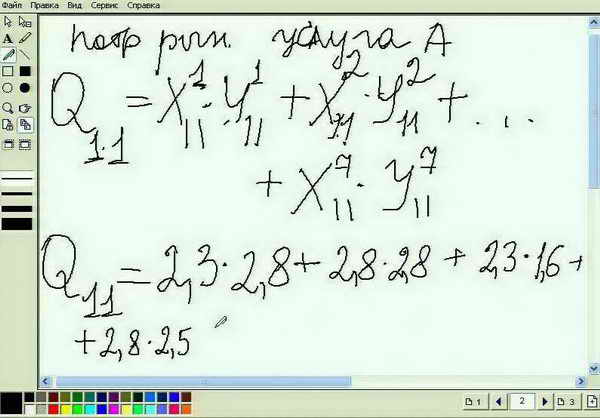 Файл Правка Вид Сервис Справка
потр рын. услуга А
Q₁.₁ = X¹₁₁ · Y¹₁₁ + X²₁₁ · Y²₁₁ + . . .
+ X⁷₁₁ · Y⁷₁₁
Q₁₁ = 2,3 · 2,8 + 2,8 · 2,8 + 2,3 · 1,6 +
+ 2,8 · 2,5
1 2 3